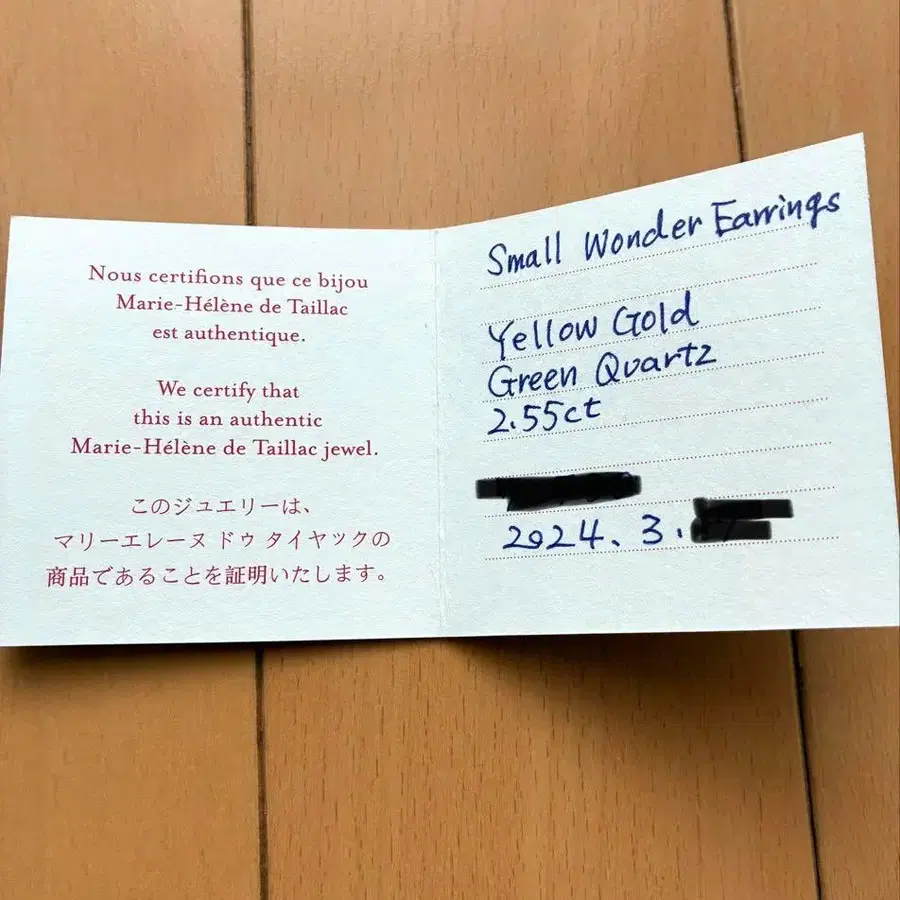 Nous certifions que ce bijou
Marie-Hélène de Taillac
est authentique.
We certify that
this is an authentic
Marie-Hélène de Taillac jewel.
このジュエリーは、
マリーエレーヌ ドゥ タイヤックの
商品であることを証明いたします。
Small Wonder Earrings
Yellow Gold
Green Quartz
2.55ct
2024. 3.